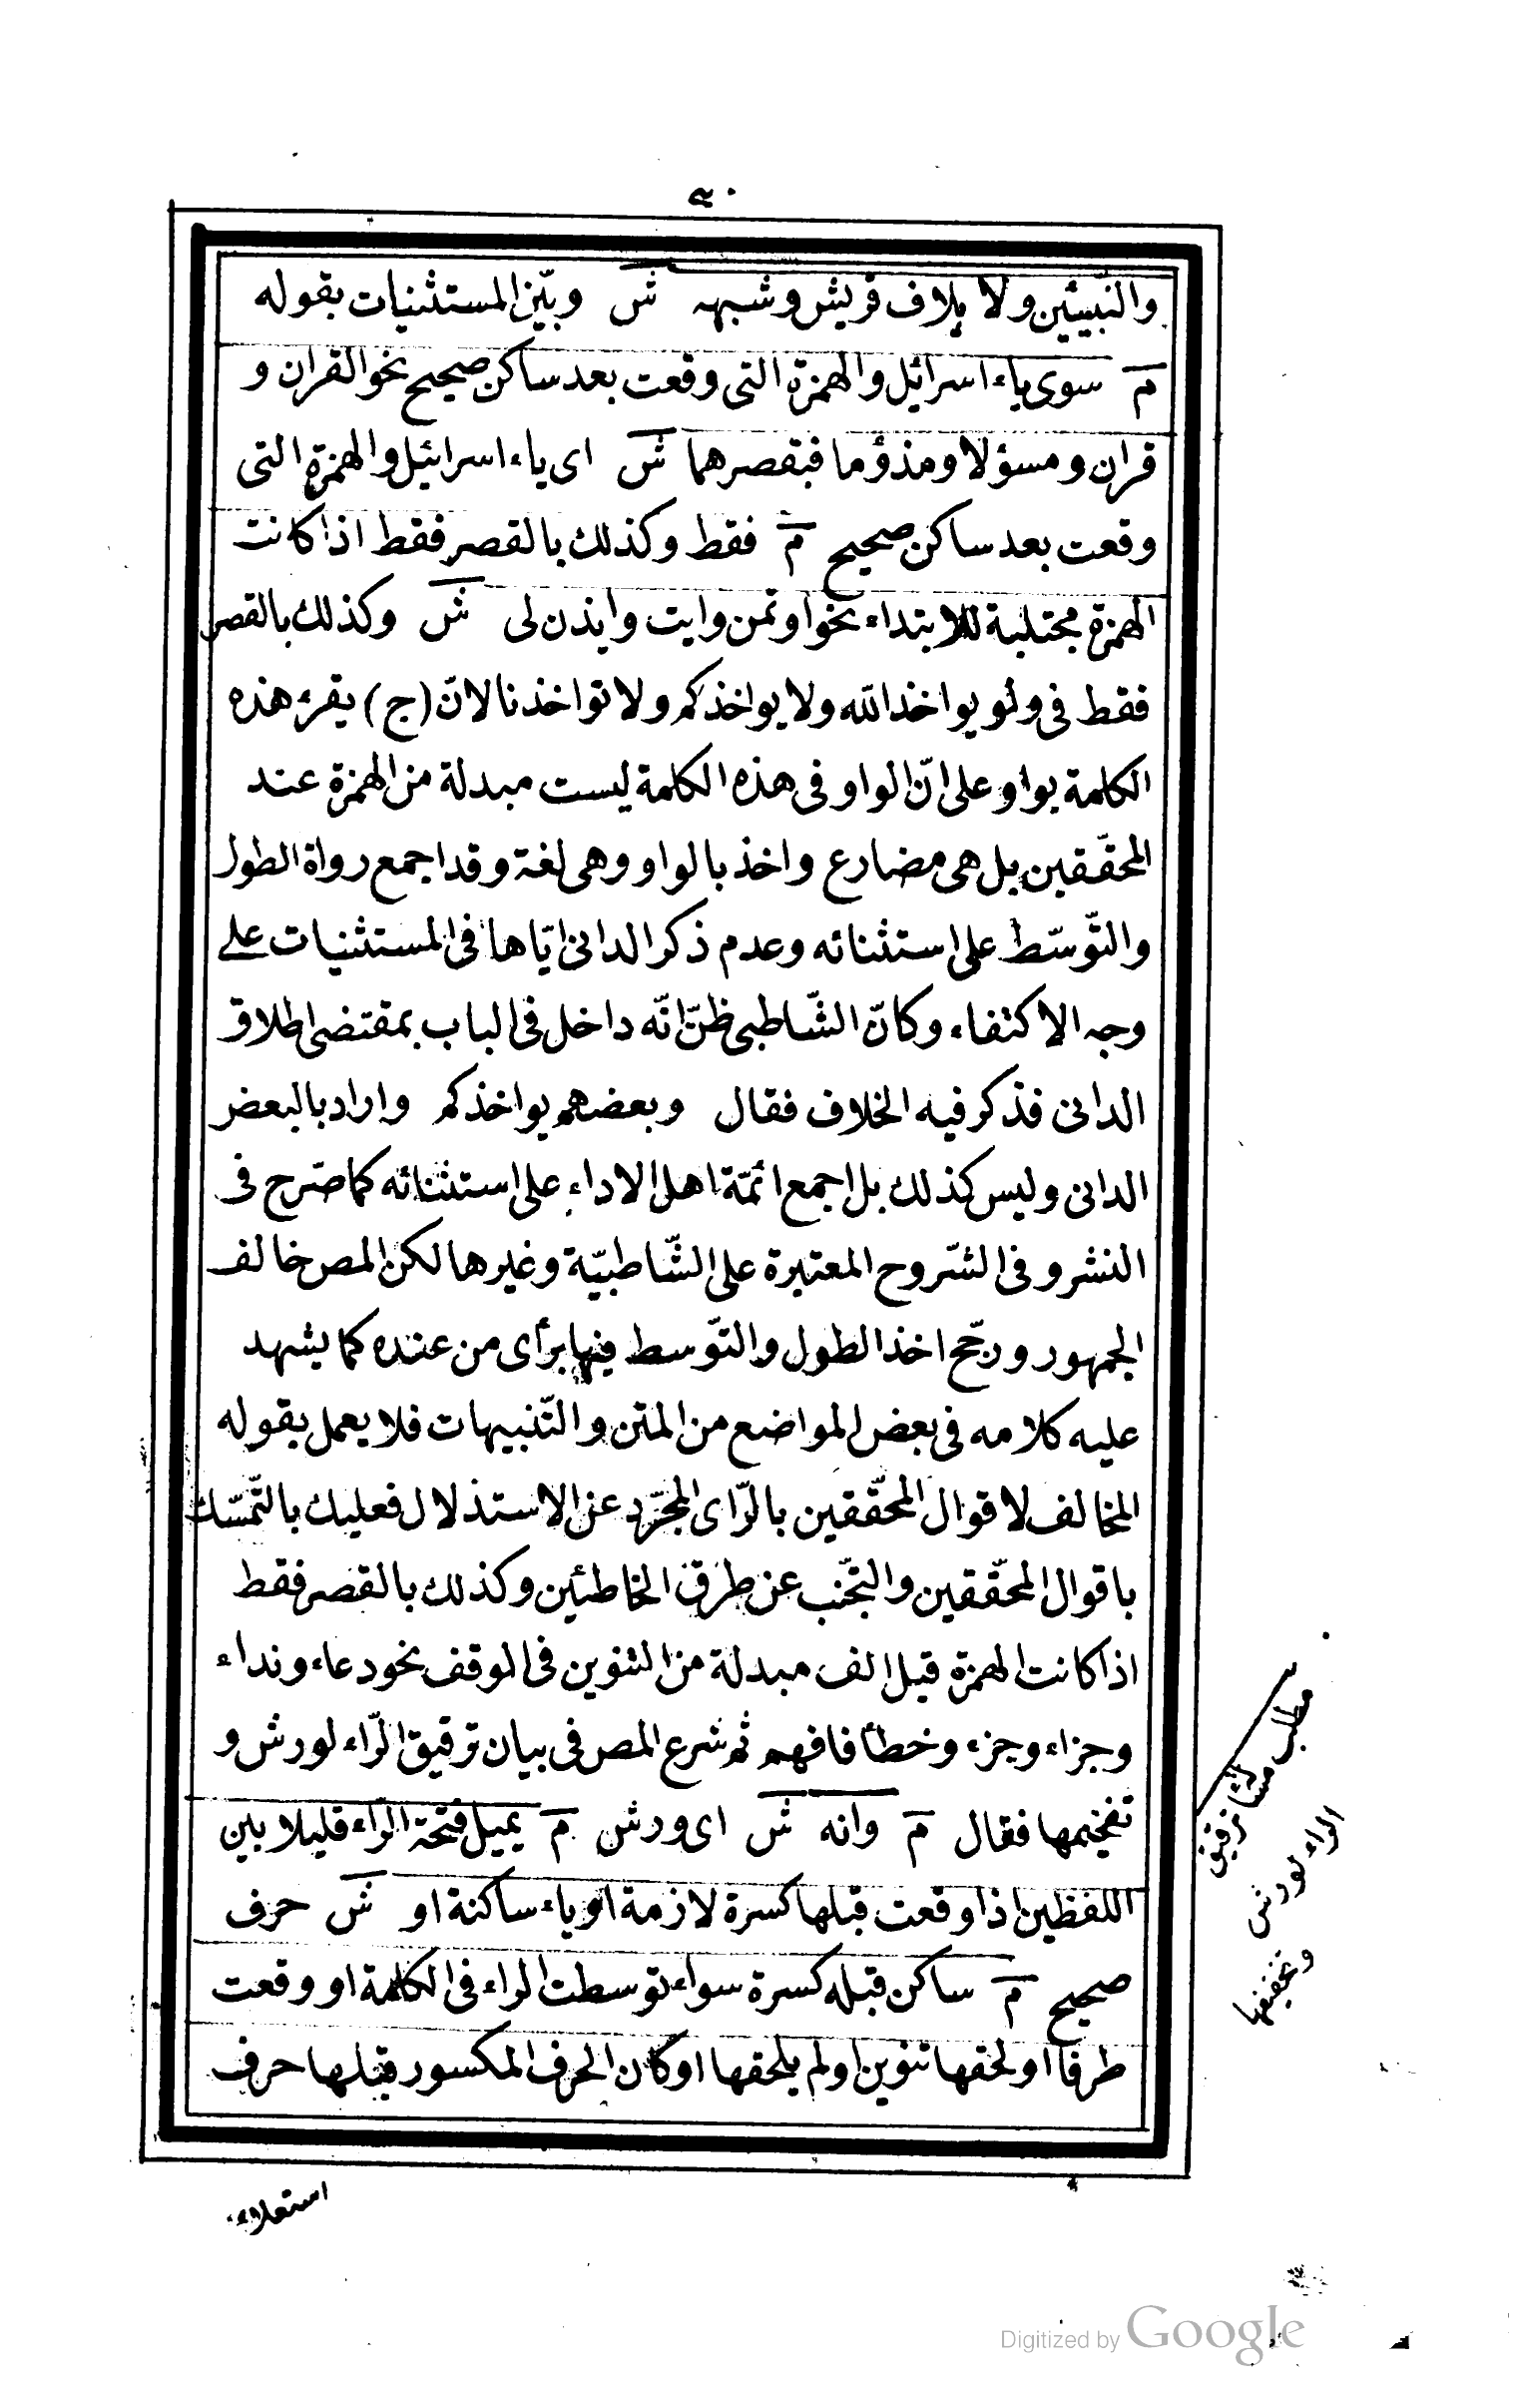 ٣٠
والنّبيّين ولا يلاف قريش وشبهه ش وبيّن المستثنيات بقوله
م سوى ياء اسرائيل والهمزة التى وقعت بعد ساكن صحيح نحو القران و
قران ومسؤلا ومذؤما فبقصرهما ش اى ياء اسرائيل والهمزة التى
وقعت بعد ساكن صحيح م فقط وكذلك بالقصر فقط اذا كانت
الهمزة مجتلبة للابتداء نحو اوتمن وايت وايذن لى ش وكذلك بالقصر
فقط فى ولو يواخذ الله ولا يواخذكم ولا تواخذنا لانّ (ج) يقرء هذه
الكلمة بواو على انّ الواو فى هذه الكلمة ليست مبدلة من الهمزة عند
المحقّقين بل هى مضارع واخذ بالواو وهى لغة وقد اجمع رواة الطول
والتّوسّط على استثنائه وعدم ذكر الدانى ايّاها فى المستثنيات على
وجه الاكتفاء وكانّ الشّاطبى ظنّ انّه داخل فى الباب بمقتضى اطلاق
الدانى فذكر فيه الخلاف فقال وبعضهم يواخذكم واراد بالبعض
الدانى وليس كذلك بل اجمع ائمّة اهل الاداء على استثنائه كما صرّح فى
النشر و فى الشّروح المعتبرة على الشّاطبيّة وغيرها لكن المص خالف
الجمهور ورجّح اخذ الطول والتّوسط فيها برأى من عنده كما يشهد
عليه كلامه فى بعض المواضع من المتن والتّنبيهات فلا يعمل بقوله
المخالف لاقوال المحقّقين بالرّاى المجرّد عن الاستذلال فعليك بالتّمسّك
باقوال المحقّقين والتجّنب عن طرق الخاطئين وكذلك بالقصر فقط
اذا كانت الهمزة قبل الف مبدلة من التنوين فى الوقف نحو دعاء ونداء
وجزاء وجزء وخطأ فافهم ثم شرع المص فى بيان ترقيق الرّاء لورش و
تفخيمها فقال م وانه ش اى ورش م يميل فتحة الرّاء قليلا بين
اللفظين اذا وقعت قبلها كسرة لازمة او ياء ساكنة او ش حرف
صحيح م ساكن قبله كسرة سواء توسطت الراء فى الكلمة او وقعت
طرفا او لحقها تنوين او لم يلحقها او كان الحرف المكسور قبلها حرف
استعلاء
مطلب
ترقيق
الراء لورش
وتخفيفها
Digitized by Google